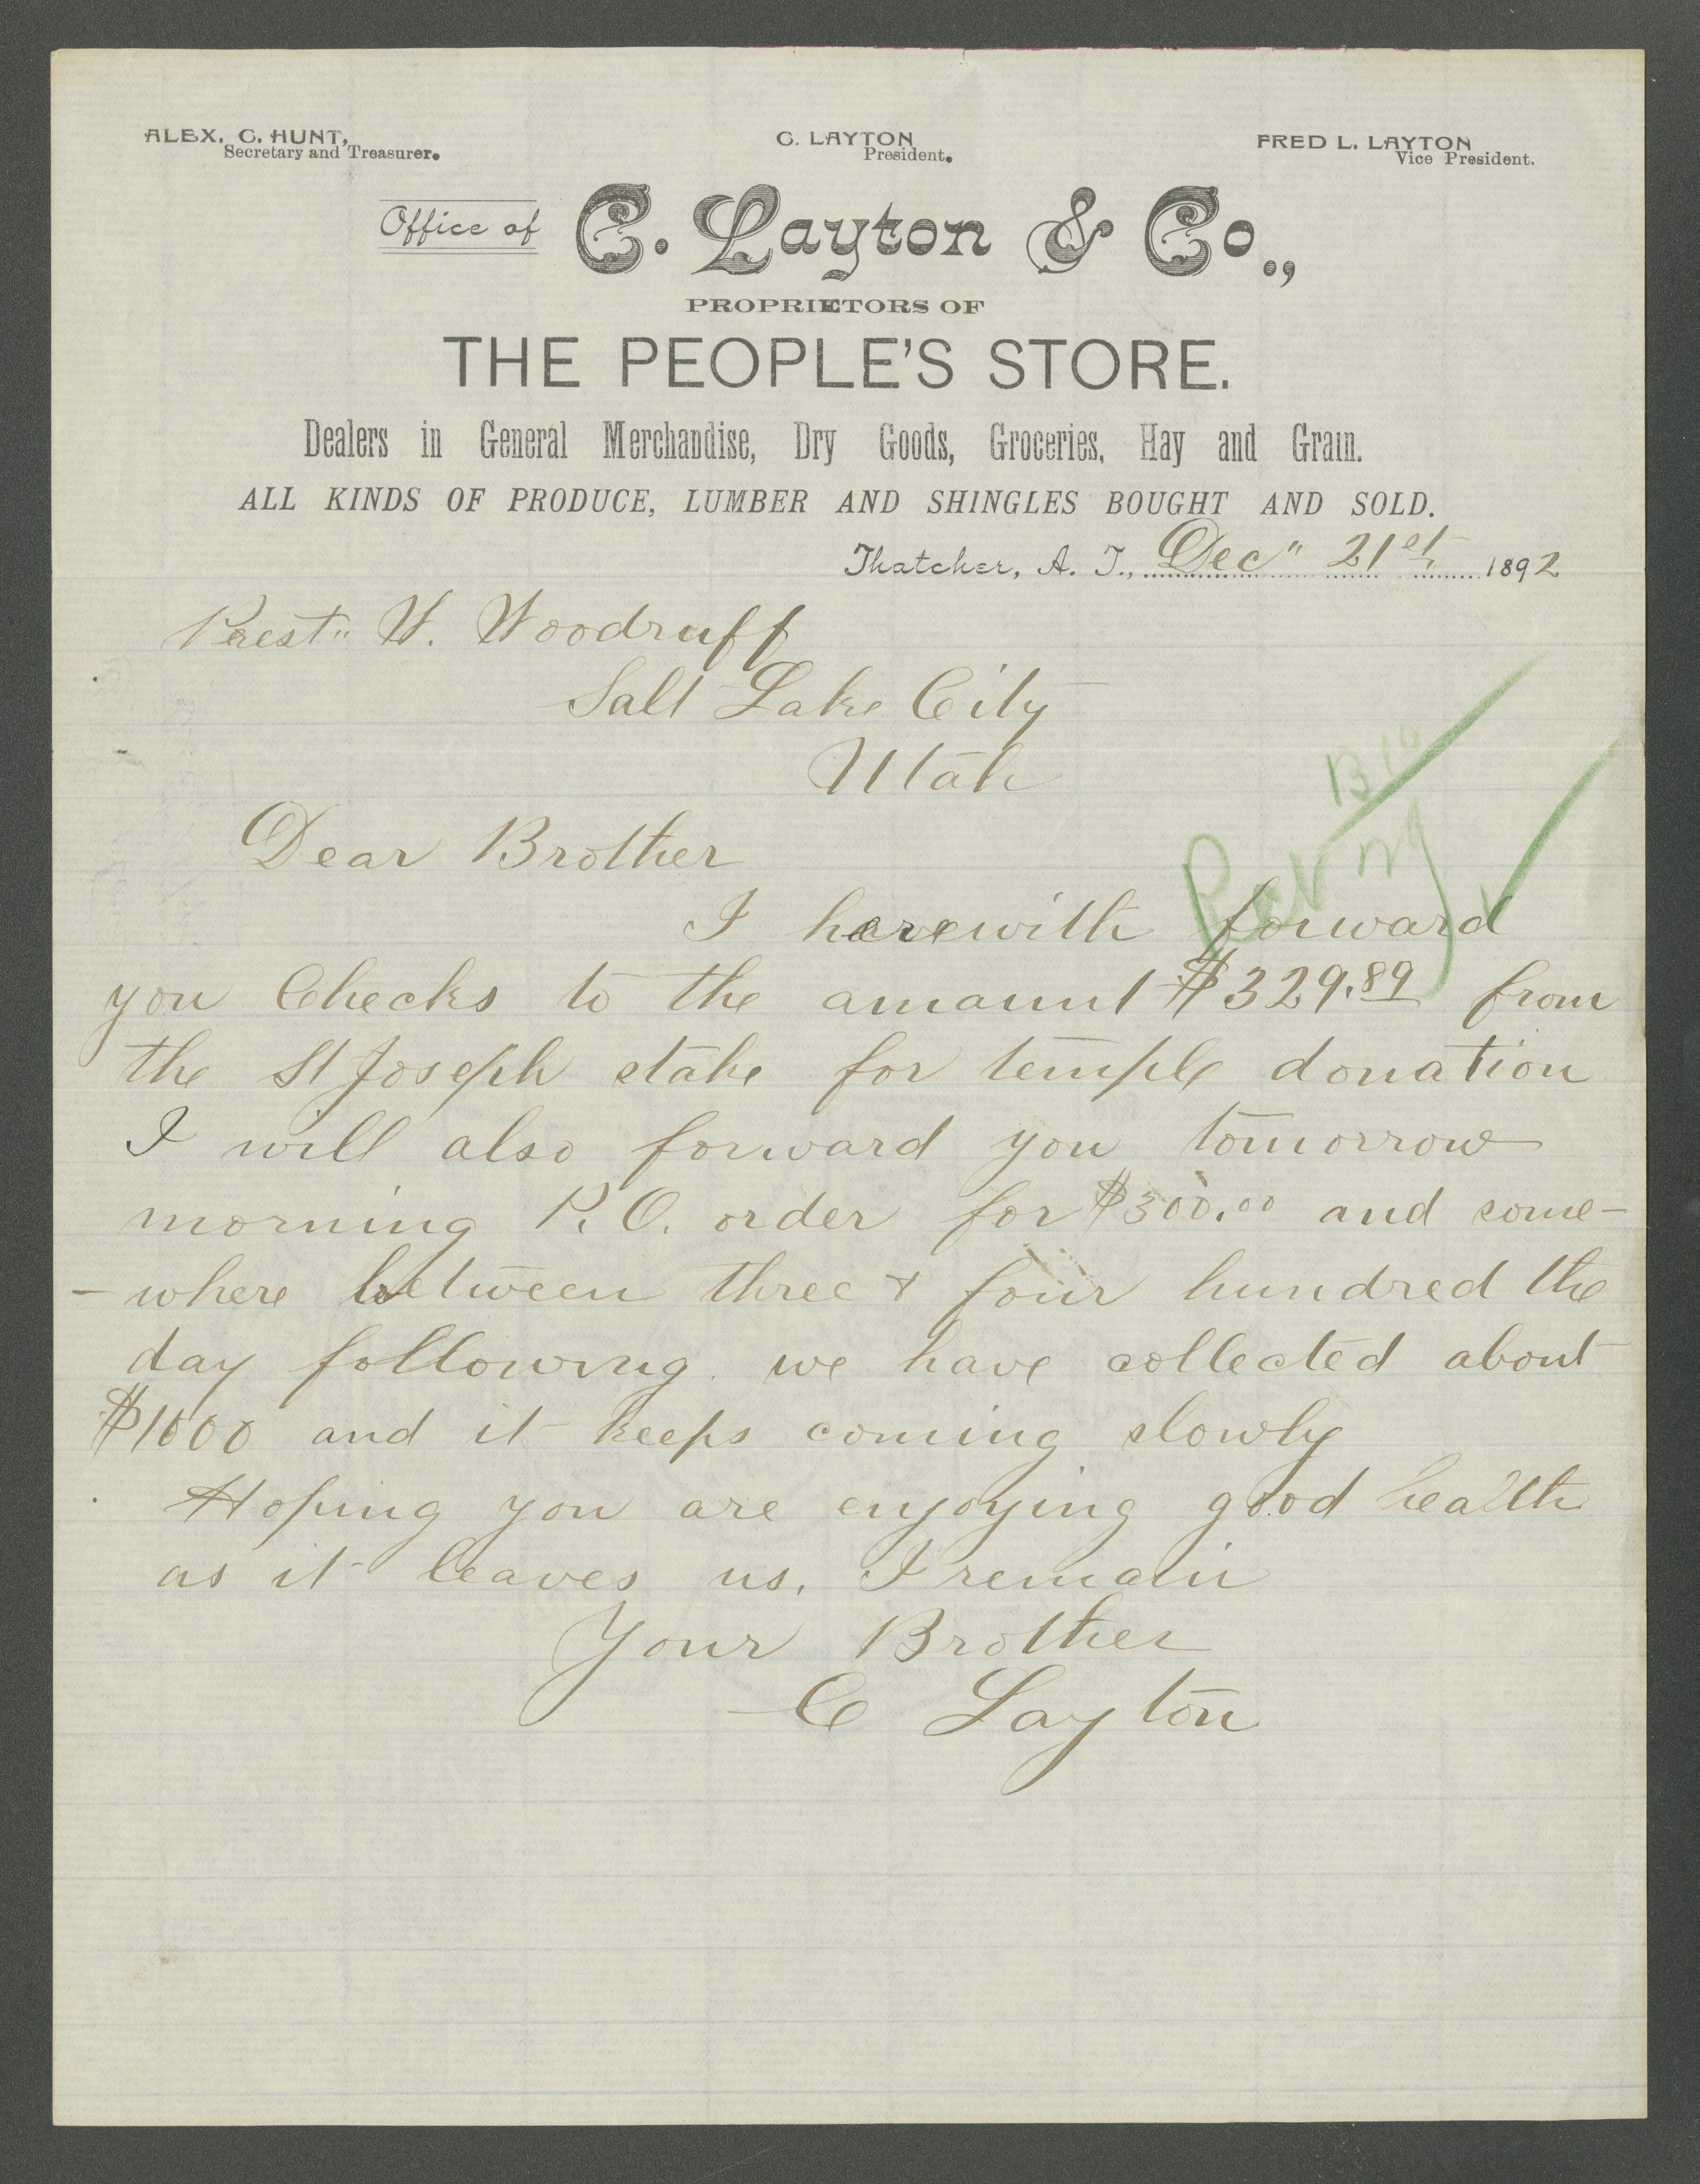 ALEX. C. HUNT,
Secretary and Treasurer.
C. LAYTON
President.
FRED L. LAYTON
Vice President.
Office of C. Layton & Co.,
PROPRIETORS OF
THE PEOPLE'S STORE.
Dealers in General Merchandise, Dry Goods, Groceries, Hay and Grain.
ALL KINDS OF PRODUCE, LUMBER AND SHINGLES BOUGHT AND SOLD.
Thatcher, A. T., Dec" 21st 1892
Prest" W. Woodruff
Salt Lake City
Utah
Dear Brother
I herewith forward
you Checks to the amount $329.89 from
the St Joseph stake for temple donation
I will also forward you tomorrow
morning P.O. order for $300.00 and some-
- where between three & four hundred the
day following. we have collected about
$1000 and it keeps coming slowly
Hoping you are enjoying good health
as it leaves us. I remain
Your Brother
C Layton